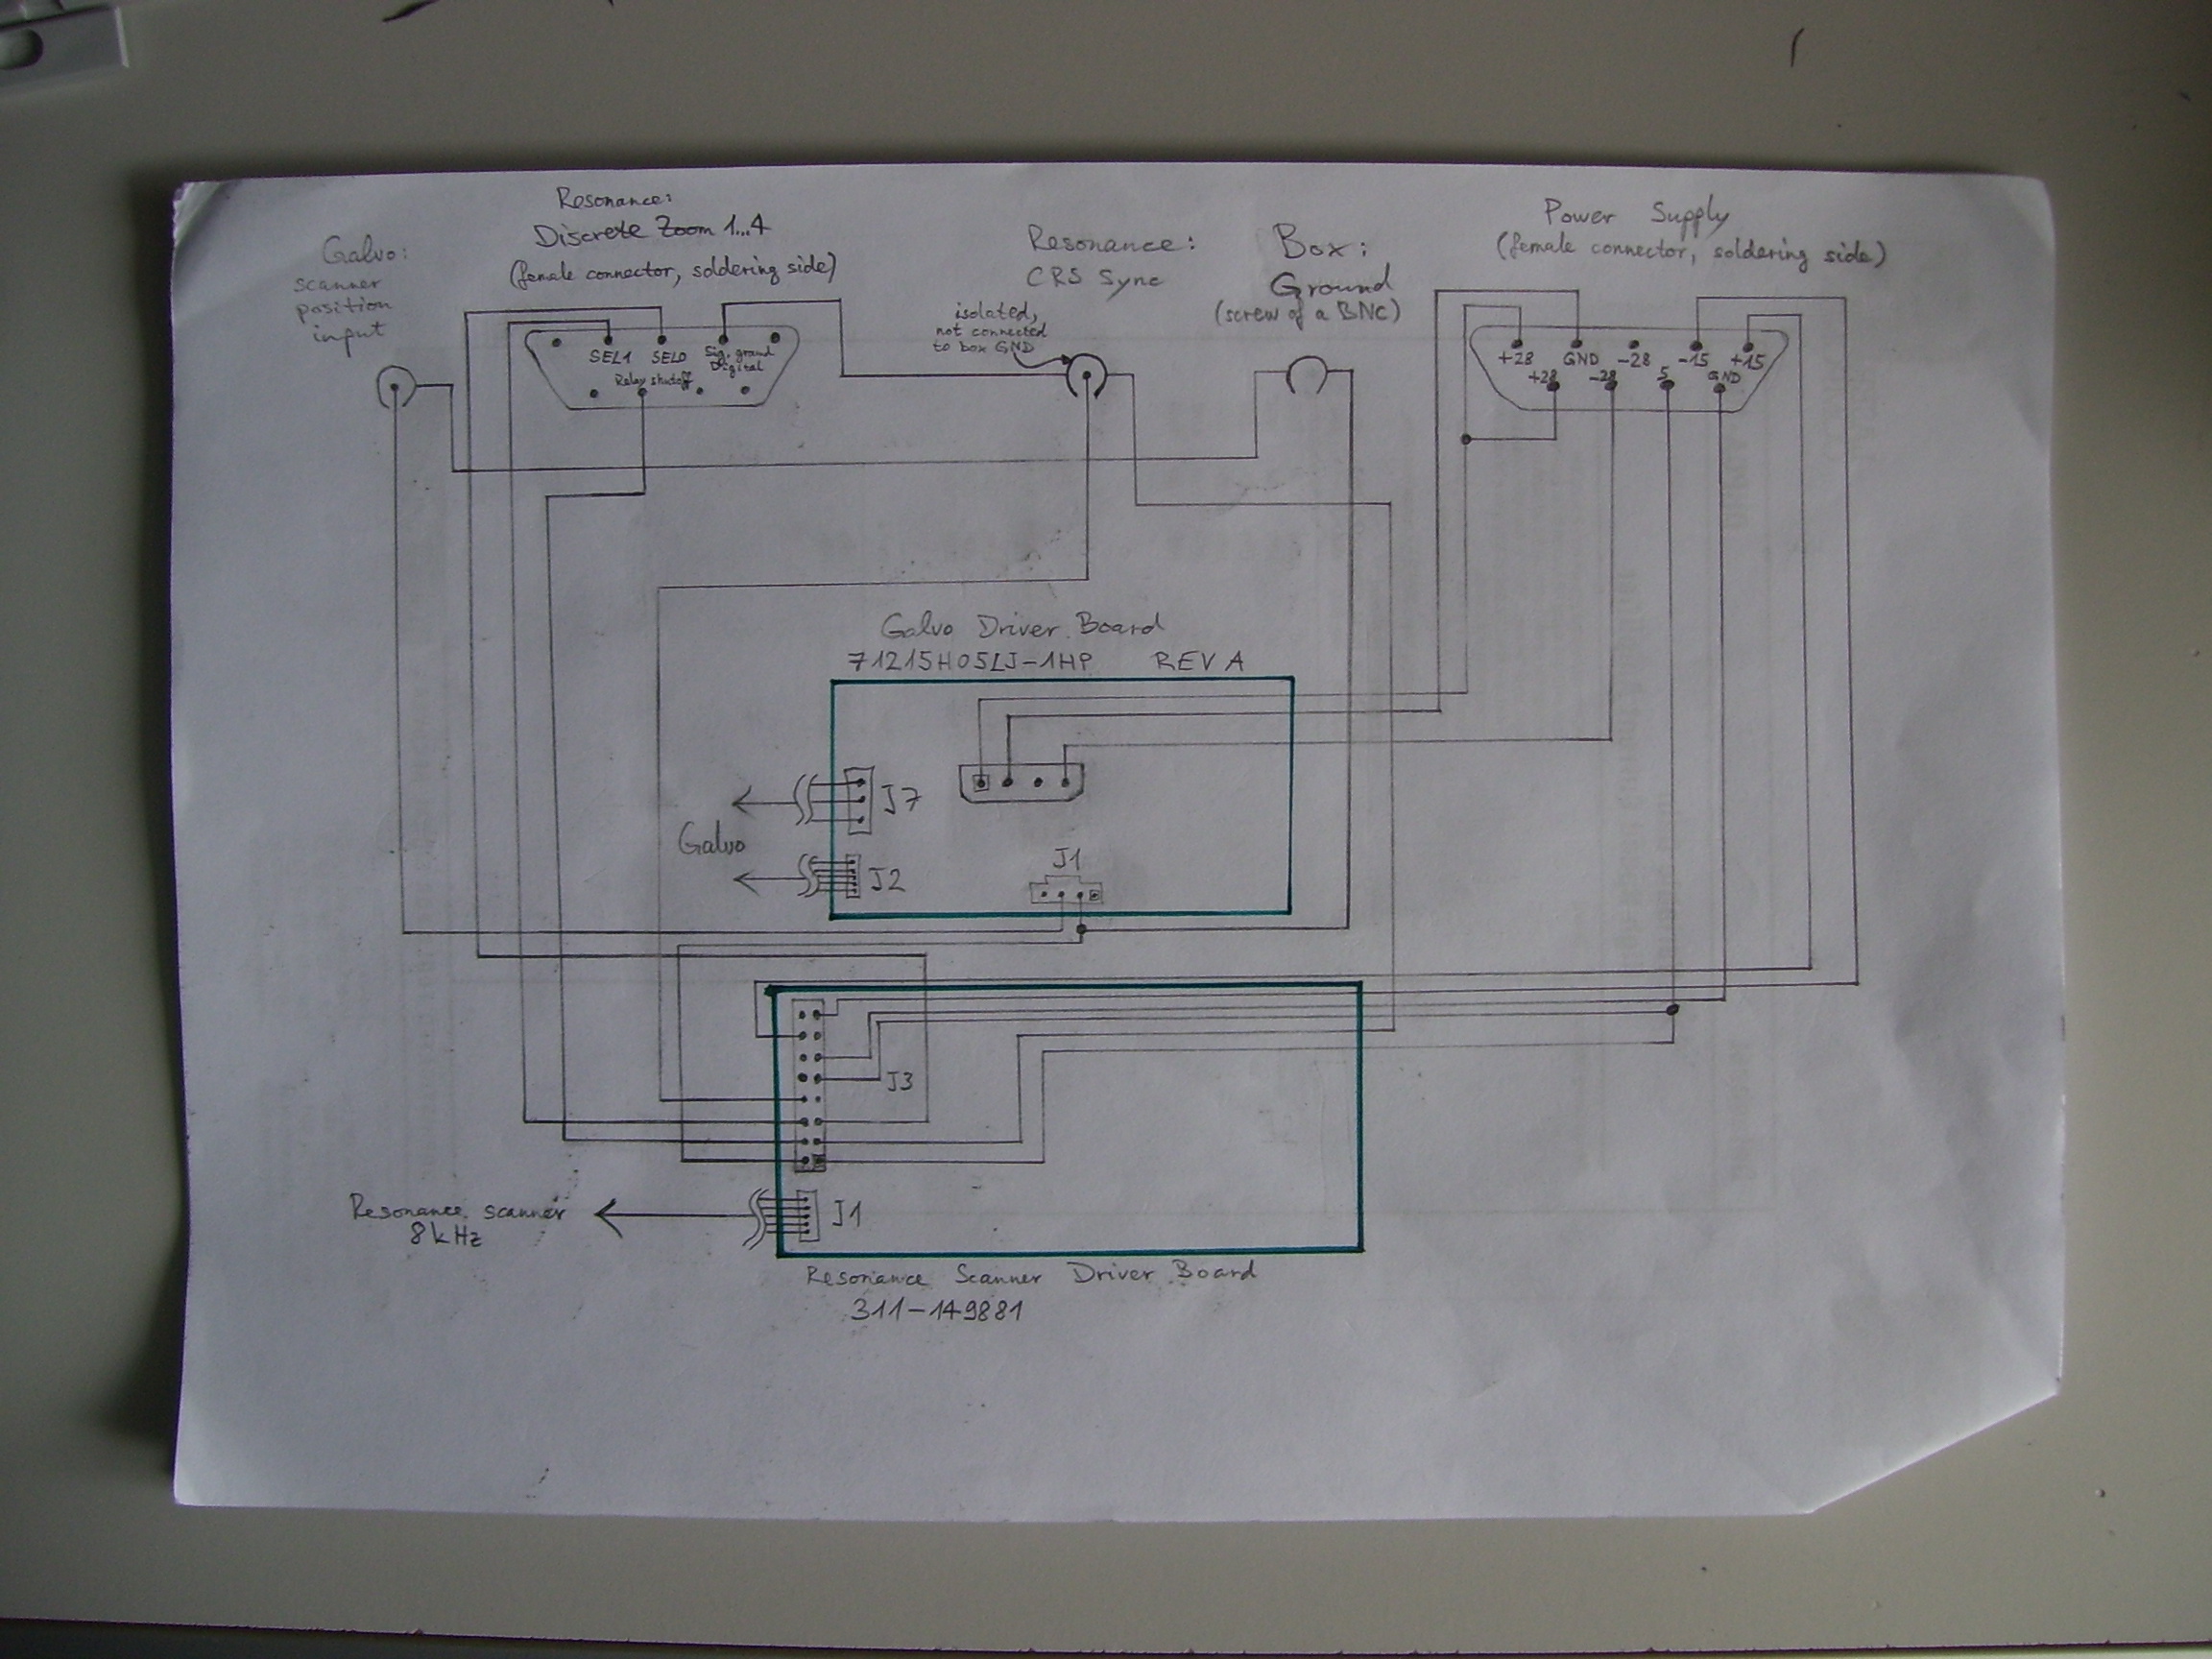 Galvo:
scanner
position
input
Resonance:
Discrete Zoom 1...4
(female connector, soldering side)
SEL1 SEL0 Sig. ground
Digital
Relay shutoff
Resonance:
CRS Sync
isolated,
not connected
to box GND
Box:
Ground
(screw of a BNC)
Power Supply
(female connector, soldering side)
+28 GND -28 -15 +15
+28 -28 5 GND
Galvo Driver Board
71215H05LJ-1HP REV A
J7
Galvo
J2
J1
J3
Resonance scanner
8kHz
J1
Resonance Scanner Driver Board
311-149881